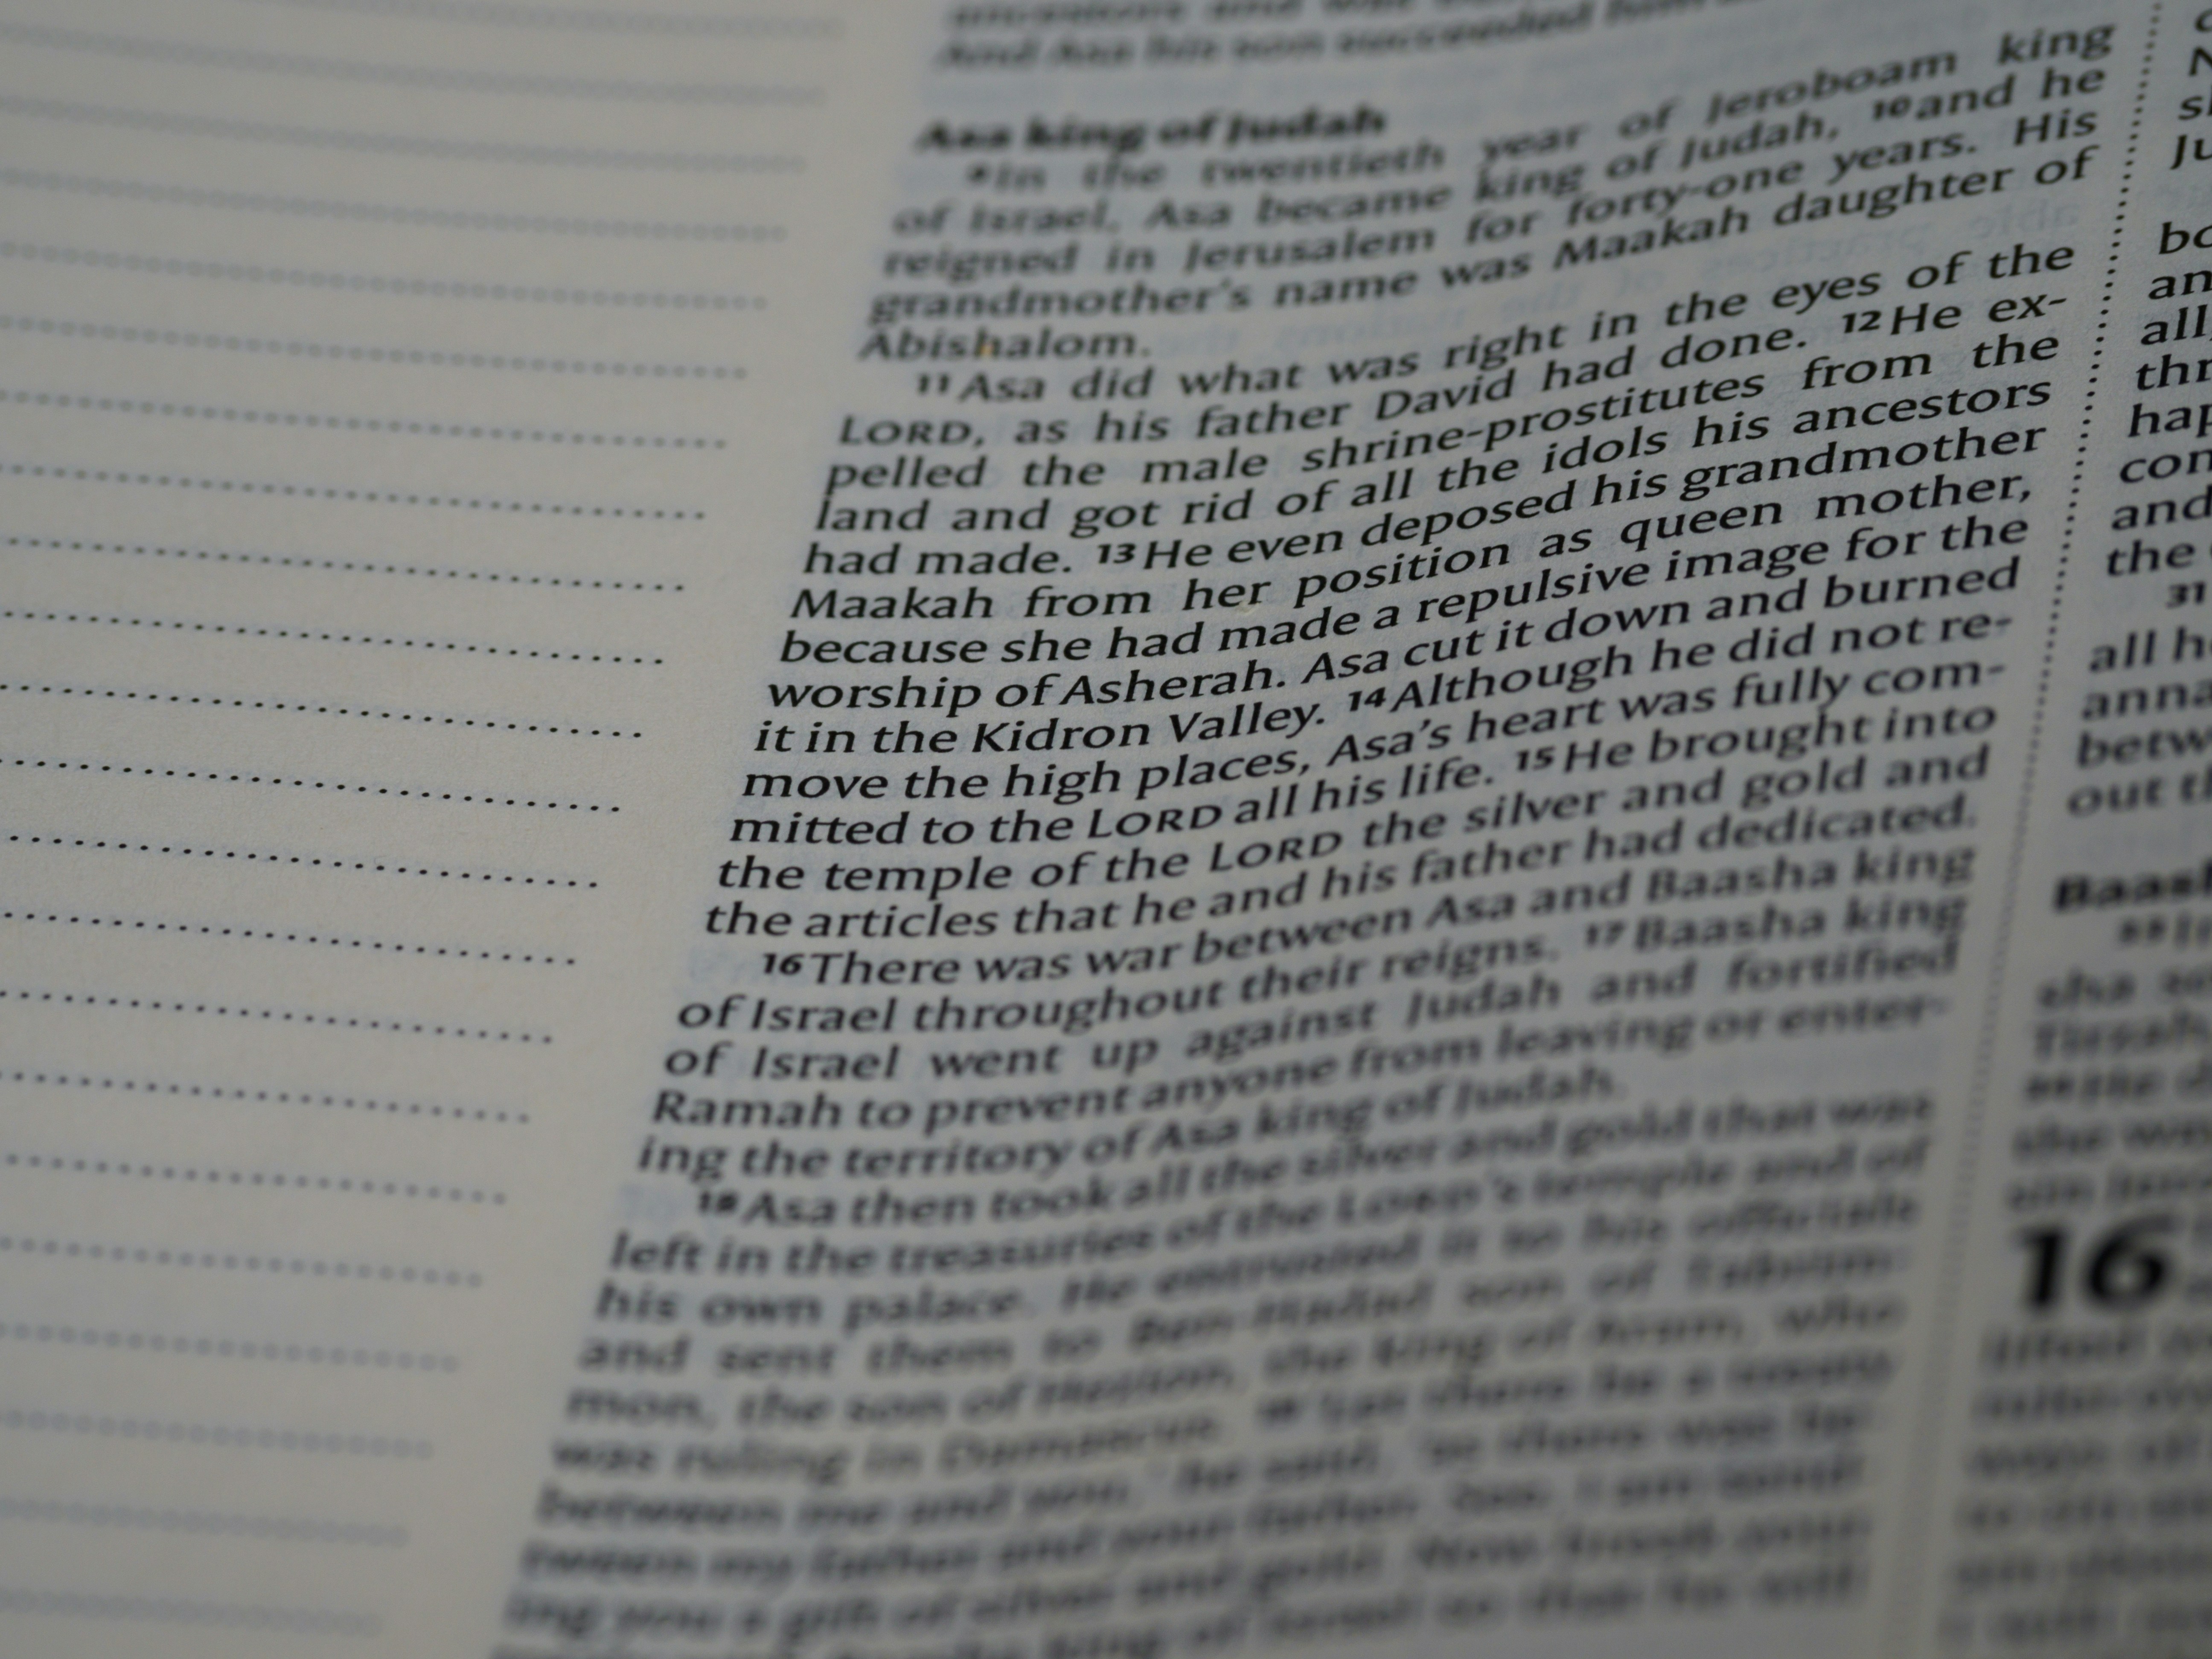 And Asa his son succeeded him
Asa king of Judah
9 In the twentieth year of Jeroboam king
of Israel, Asa became king of Judah, 10 and he
reigned in Jerusalem for forty-one years. His
grandmother's name was Maakah daughter of
Abishalom.
11 Asa did what was right in the eyes of the
LORD, as his father David had done. 12 He ex-
pelled the male shrine-prostitutes from the
land and got rid of all the idols his ancestors
had made. 13 He even deposed his grandmother
Maakah from her position as queen mother,
because she had made a repulsive image for the
worship of Asherah. Asa cut it down and burned
it in the Kidron Valley. 14 Although he did not re-
move the high places, Asa's heart was fully com-
mitted to the LORD all his life. 15 He brought into
the temple of the LORD the silver and gold and
the articles that he and his father had dedicated.
16 There was war between Asa and Baasha king
of Israel throughout their reigns. 17 Baasha king
of Israel went up against Judah and fortified
Ramah to prevent anyone from leaving or enter-
ing the territory of Asa king of Judah.
18 Asa then took all the silver and gold that was
left in the treasuries of the LORD's temple and of
his own palace. He entrusted it to his officials
and sent them to Ben-Hadad son of Tabrim-
mon, the son of Hezion, the king of Aram, who
was ruling in Damascus. 19 'Let there be a treaty
between me and you,' he said, 'as there was be-
tween my father and your father. See, I am send-
ing you a gift of silver and gold. Now break your
an
all
and
the
31
all
out
16